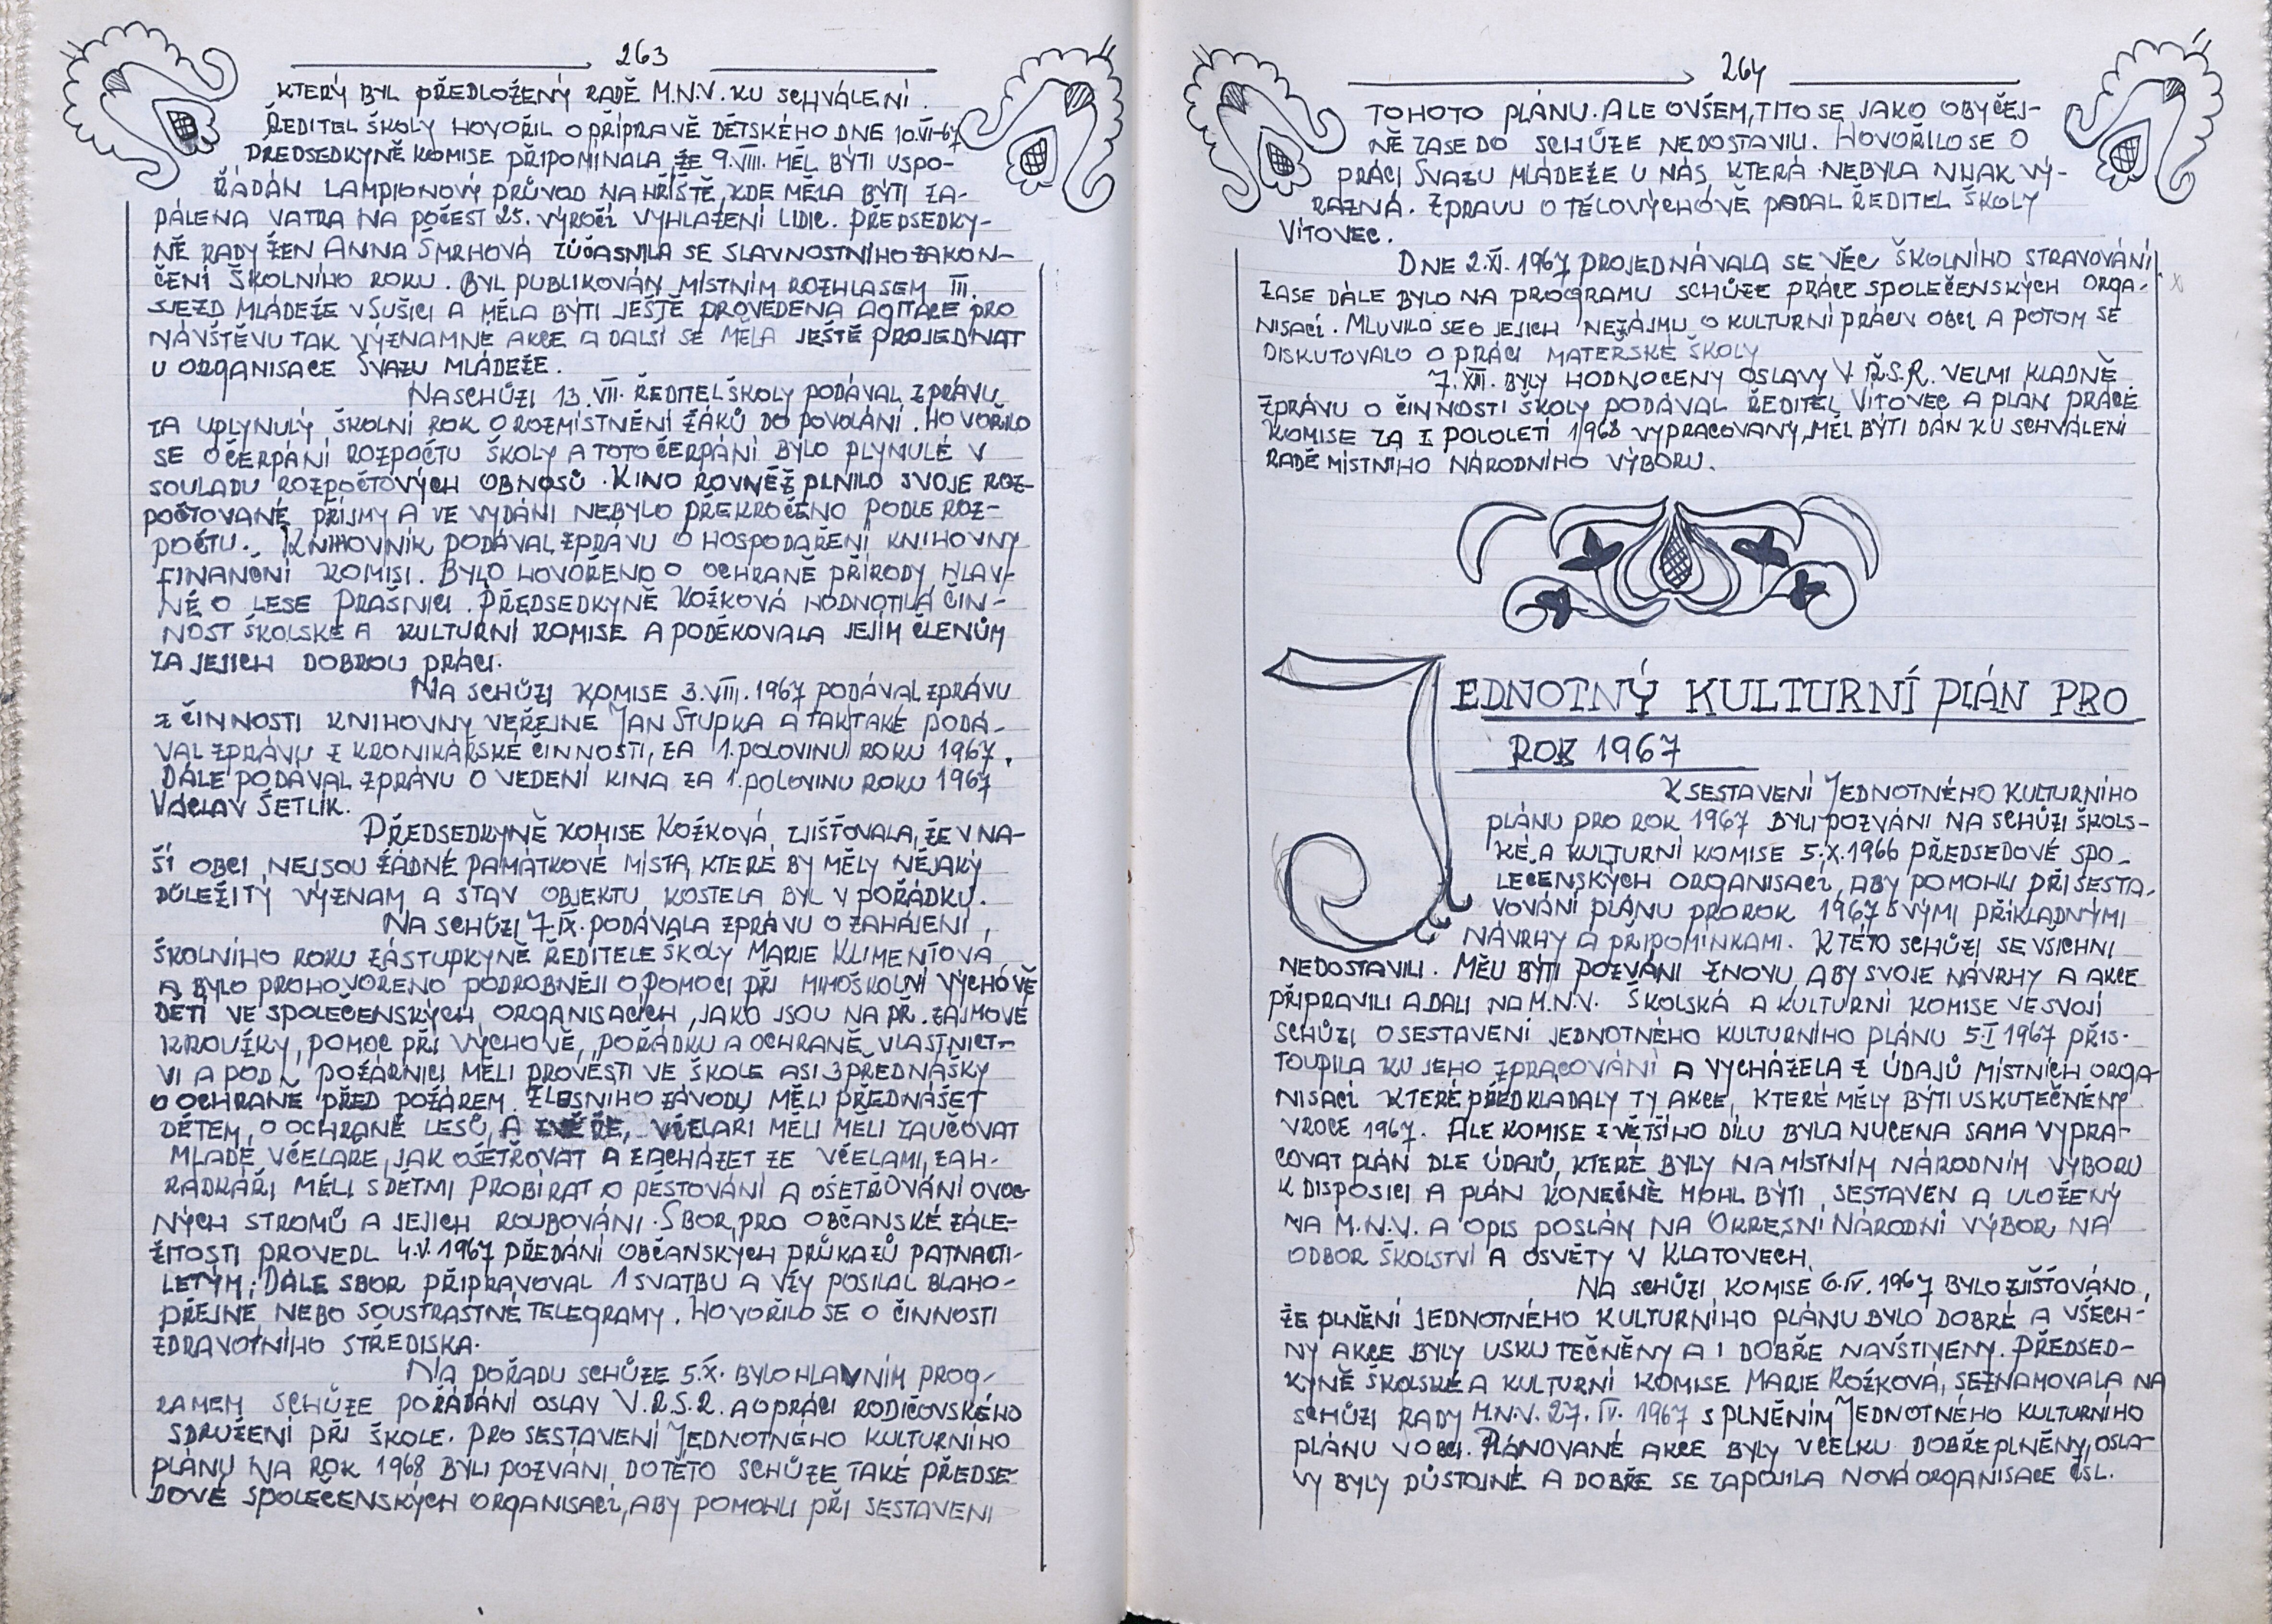 263
KTERÝ BYL PŘEDLOŽENÝ RADĚ M.N.V. KU SCHVÁLENÍ.
ŘEDITEL ŠKOLY HOVOŘIL O PŘÍPRAVĚ DĚTSKÉHO DNE 10.VI-67
PŘEDSEDKYNĚ KOMISE PŘIPOMÍNALA, ŽE 9.VIII. MĚL BÝTI USPO-
ŘÁDÁN LAMPIONOVÝ PRŮVOD NA HŘIŠTĚ, KDE MĚLA BÝTI ZA-
PÁLENA VATRA NA POČEST 25. VÝROČÍ VYHLAŽENÍ LIDIC. PŘEDSEDKY-
NĚ RADY ŽEN ANNA ŠMRHOVÁ ZÚČASNILA SE SLAVNOSTNÍHO ZAKON-
ČENÍ ŠKOLNÍHO ROKU. BYL PUBLIKOVÁN MÍSTNÍM ROZHLASEM III.
SJEZD MLÁDEŽE V SUŠICI A MĚLA BÝTI JEŠTĚ PROVEDENA AGITACE PRO
NÁVŠTĚVU TAK VÝZNAMNÉ AKCE A DALŠÍ SE MĚLA JEŠTĚ PROJEDNAT
U ORGANISACE SVAZU MLÁDEŽE.
NA SCHŮZI 13.VII. ŘEDITEL ŠKOLY PODÁVAL ZPRÁVU
ZA UPLYNULÝ ŠKOLNÍ ROK O ROZMÍSTNĚNÍ ŽÁKŮ DO POVOLÁNÍ. HOVOŘILO
SE O ČERPÁNÍ ROZPOČTU ŠKOLY A TOTO ČERPÁNÍ BYLO PLYNULÉ V
SOULADU ROZPOČTOVÝCH OBNOSŮ. KINO ROVNĚŽ PLNILO SVOJE ROZ-
POČTOVANÉ PŘÍJMY A VE VYDÁNÍ NEBYLO PŘEKROČENO PODLE ROZ-
POČTU. KNIHOVNÍK PODÁVAL ZPRÁVU O HOSPODAŘENÍ KNIHOVNY
FINANČNÍ KOMISI. BYLO HOVOŘENO O OCHRANĚ PŘÍRODY, HLAV-
NĚ O LESE PRAŠNICI. PŘEDSEDKYNĚ KOŽKOVÁ HODNOTILA ČIN-
NOST ŠKOLSKÉ A KULTURNÍ KOMISE A PODĚKOVALA JEJÍM ČLENŮM
ZA JEJICH DOBROU PRÁCI.
NA SCHŮZI KOMISE 3.VIII.1967 PODÁVAL ZPRÁVU
Z ČINNOSTI KNIHOVNY VEŘEJNÉ JAN STUPKA A TAKTAKÉ PODÁ-
VAL ZPRÁVU Z KRONIKÁŘSKÉ ČINNOSTI, ZA 1. POLOVINU ROKU 1967.
DÁLE PODÁVAL ZPRÁVU O VEDENÍ KINA ZA 1. POLOVINU ROKU 1967
VÁCLAV ŠETLÍK.
PŘEDSEDKYNĚ KOMISE KOŽKOVÁ ZJIŠŤOVALA, ŽE V NA-
ŠÍ OBCI NEJSOU ŽÁDNÉ PAMÁTKOVÉ MÍSTA, KTERÉ BY MĚLY NĚJAKÝ
DŮLEŽITÝ VÝZNAM A STAV OBJEKTU KOSTELA BYL V POŘÁDKU.
NA SCHŮZI 7.IX. PODÁVALA ZPRÁVU O ZAHÁJENÍ
ŠKOLNÍHO ROKU ZÁSTUPKYNĚ ŘEDITELE ŠKOLY MARIE KLIMENTOVÁ
A BYLO PROHOVOŘENO PODROBNĚJI O POMOCI PŘI MIMOŠKOLNÍ VÝCHOVĚ
DĚTÍ VE SPOLEČENSKÝCH ORGANISACÍCH, JAKO JSOU NA PŘ. ZÁJMOVÉ
KROUŽKY, POMOC PŘI VÝCHOVĚ, POŘÁDKU A OCHRANĚ VLASTNICT-
VÍ A POD. POŽÁRNÍCI MĚLI PROVÉSTI VE ŠKOLE ASI 3 PŘEDNÁŠKY
O OCHRANĚ PŘED POŽÁREM. Z LESNÍHO ZÁVODU MĚLI PŘEDNÁŠET
DĚTEM, O OCHRANĚ LESŮ, A ZVĚŘE, VČELAŘI MĚLI MĚLI ZAUČOVAT
MLADÉ VČELAŘE, JAK OŠETŘOVAT A ZACHÁZET ZE VČELAMI, ZAH-
RÁDKÁŘI MĚLI S DĚTMI PROBÍRAT O PĚSTOVÁNÍ A OŠETŘOVÁNÍ OVOC-
NÝCH STROMŮ A JEJICH ROUBOVÁNÍ. SBOR PRO OBČANSKÉ ZÁLE-
ŽITOSTI PROVEDL 4.V.1967 PŘEDÁNÍ OBČANSKÝCH PRŮKAZŮ PATNÁCTI-
LETÝM; DÁLE SBOR PŘIPRAVOVAL 1 SVATBU A VŽY POSÍLAL BLAHO-
PŘEJNÉ, NEBO SOUSTRASTNÉ TELEGRAMY. HOVOŘILO SE O ČINNOSTI
ZDRAVOTNÍHO STŘEDISKA.
NA POŘADU SCHŮZE 5.X. BYLO HLAVNÍM PROG-
RAMEM SCHŮZE POŘÁDÁNÍ OSLAV V.Ř.S.R. A O PRÁCI RODIČOVSKÉHO
SDRUŽENÍ PŘI ŠKOLE. PRO SESTAVENÍ JEDNOTNÉHO KULTURNÍHO
PLÁNU NA ROK 1968 BYLI POZVÁNI DO TÉTO SCHŮZE TAKÉ PŘEDSE-
DOVÉ SPOLEČENSKÝCH ORGANISACÍ, ABY POMOHLI PŘI SESTAVENÍ
264
TOHOTO PLÁNU. ALE OVŠEM, TITO SE JAKO OBYČEJ-
NĚ ZASE DO SCHŮZE NEDOSTAVILI. HOVOŘILO SE O
PRÁCI SVAZU MLÁDEŽE U NÁS, KTERÁ NEBYLA NIJAK VÝ-
RAZNÁ. ZPRÁVU O TĚLOVÝCHOVĚ PODAL ŘEDITEL ŠKOLY
VÍTOVEC.
DNE 2.XI.1967 PROJEDNÁVALA SE VĚC ŠKOLNÍHO STRAVOVÁNÍ
ZASE DÁLE BYLO NA PROGRAMU SCHŮZE PRÁCE SPOLEČENSKÝCH ORGA-
NISACÍ. MLUVILO SE O JEJICH NEZÁJMU O KULTURNÍ PRÁCI V OBCI A POTOM SE
DISKUTOVALO O PRÁCI MATEŘSKÉ ŠKOLY
7.XII. BYLY HODNOCENY OSLAVY V.Ř.S.R. VELMI KLADNĚ.
ZPRÁVU O ČINNOSTI ŠKOLY PODÁVAL ŘEDITEL VÍTOVEC A PLÁN PRÁCE
KOMISE ZA I POLOLETÍ 1968 VYPRACOVANÝ, MĚL BÝTI DÁN KU SCHVÁLENÍ
RADĚ MÍSTNÍHO NÁRODNÍHO VÝBORU.
JEDNOTNÝ KULTURNÍ PLÁN PRO
ROK 1967
K SESTAVENÍ JEDNOTNÉHO KULTURNÍHO
PLÁNU PRO ROK 1967 BYLI POZVÁNI NA SCHŮZI ŠKOLS-
KÉ A KULTURNÍ KOMISE 5.X.1966 PŘEDSEDOVÉ SPO-
LEČENSKÝCH ORGANISACÍ, ABY POMOHLI PŘI SESTA-
VOVÁNÍ PLÁNU PRO ROK 1967 SVÝMI PŘÍKLADNÝMI
NÁVRHY A PŘIPOMÍNKAMI. K TÉTO SCHŮZI SE VŠICHNI
NEDOSTAVILI. MĚLI BÝTI POZVÁNI ZNOVU, ABY SVOJE NÁVRHY A AKCE
PŘIPRAVILI A DALI NA M.N.V. ŠKOLSKÁ A KULTURNÍ KOMISE VE SVOJÍ
SCHŮZI O SESTAVENÍ JEDNOTNÉHO KULTURNÍHO PLÁNU 5.I 1967 PŘIS-
TOUPILA KU JEHO ZPRACOVÁNÍ A VYCHÁZELA Z ÚDAJŮ MÍSTNÍCH ORGA-
NISACÍ KTERÉ PŘEDKLÁDALY TY AKCE, KTERÉ MĚLY BÝTI USKUTEČNĚNY
V ROCE 1967. ALE KOMISE Z VĚTŠÍHO DÍLU BYLA NUCENA SAMA VYPRA-
COVAT PLÁN DLE ÚDAJŮ, KTERÉ BYLY NA MÍSTNÍM NÁRODNÍM VÝBORU
K DISPOSICI A PLÁN KONEČNĚ MOHL BÝTI SESTAVEN A ULOŽENÝ
NA M.N.V. A OPIS POSLÁN NA OKRESNÍ NÁRODNÍ VÝBOR, NA
ODBOR ŠKOLSTVÍ A OSVĚTY V KLATOVECH.
NA SCHŮZI KOMISE 6.IV.1967 BYLO ZJIŠŤOVÁNO,
ŽE PLNĚNÍ JEDNOTNÉHO KULTURNÍHO PLÁNU BYLO DOBRÉ A VŠECH-
NY AKCE BYLY USKUTEČNĚNY A I DOBŘE NAVŠTÍVENY. PŘEDSED-
KYNĚ ŠKOLSKÉ A KULTURNÍ KOMISE MARIE KOŽKOVÁ, SEZNAMOVALA NA
SCHŮZI RADY M.N.V. 27.IV.1967 S PLNĚNÍM JEDNOTNÉHO KULTURNÍHO
PLÁNU V OBCI. PLÁNOVANÉ AKCE BYLY VCELKU DOBŘE PLNĚNY, OSLA-
VY BYLY DŮSTOJNÉ A DOBŘE SE ZAPOJILA NOVÁ ORGANISACE ČSL.